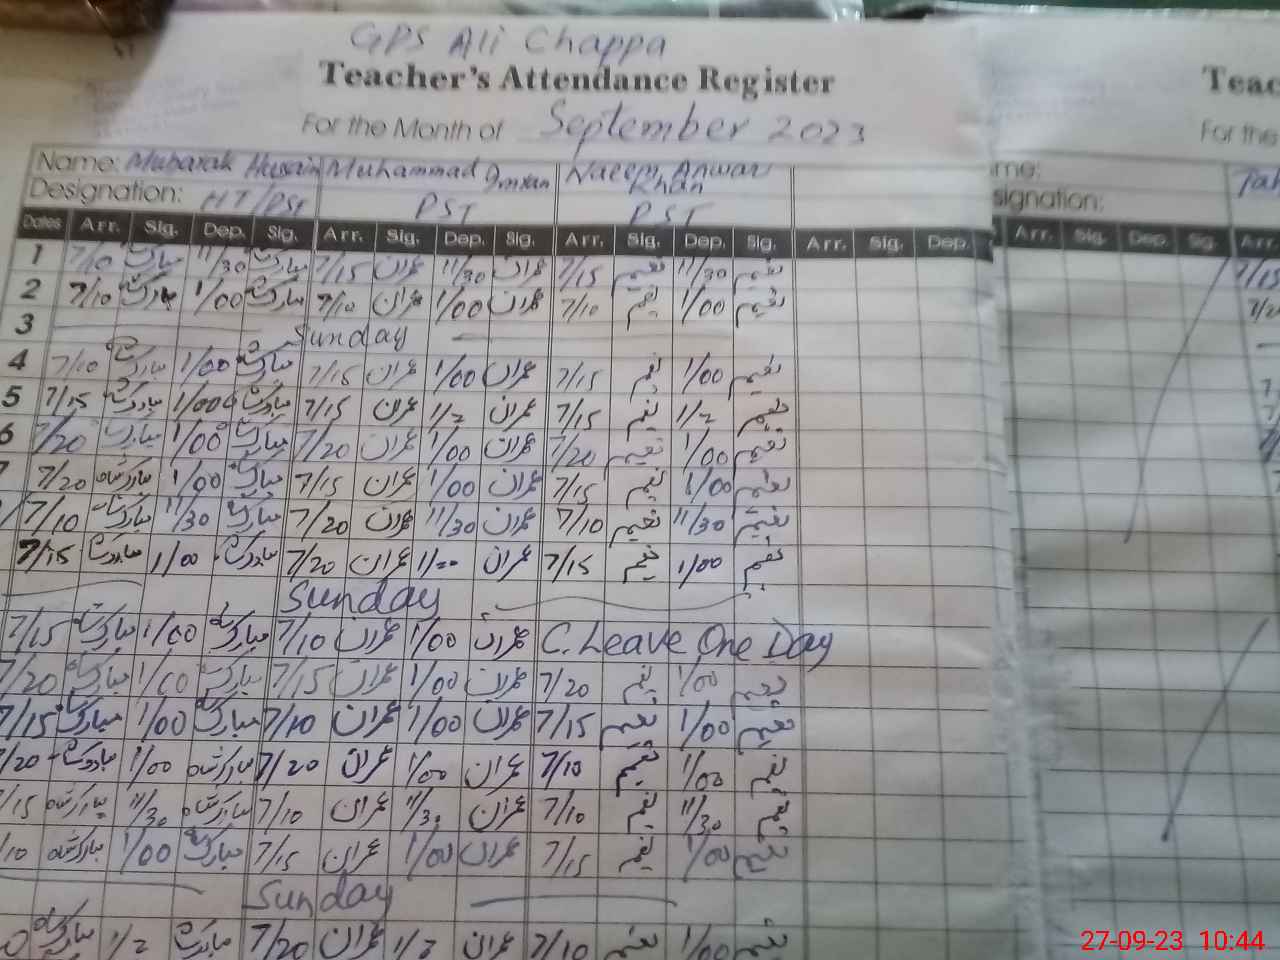 GPS Ali Chappa
Teacher's Attendance Register
For the Month of September 2023
Name: Mubarak Husain Muhammad Imran Naeem Anwar Khan
Designation: HT/PST PST PST
Dates Arr. Sig. Dep. Sig. Arr. Sig. Dep. Sig. Arr. Sig. Dep. Sig. Arr. Sig. Dep.
1 7/10 مبارک 11/30 مبارک 7/15 عمران 11/30 عمران 7/15 نعیم 11/30 نعیم
2 7/10 مبارک 1/00 مبارک 7/10 عمران 1/00 عمران 7/10 نعیم 1/00 نعیم
3 Sunday
4 7/10 مبارک 1/00 مبارک 7/15 عمران 1/00 عمران 7/15 نعیم 1/00 نعیم
5 7/15 مبارک 1/00 مبارک 7/15 عمران 1/2 عمران 7/15 نعیم 1/2 نعیم
6 7/20 مبارک 1/00 مبارک 7/20 عمران 1/00 عمران 7/20 نعیم 1/00 نعیم
7/20 مبارک 1/00 مبارک 7/15 عمران 1/00 عمران 7/15 نعیم 1/00 نعیم
7/10 مبارک 11/30 مبارک 7/20 عمران 11/30 عمران 7/10 نعیم 11/30 نعیم
7/15 مبارک 1/00 مبارک 7/20 عمران 1/00 عمران 7/15 نعیم 1/00 نعیم
Sunday
7/15 مبارک 1/00 مبارک 7/10 عمران 1/00 عمران C. Leave One Day
7/20 مبارک 1/00 مبارک 7/15 عمران 1/00 عمران 7/20 نعیم 1/00 نعیم
7/15 مبارک 1/00 مبارک 7/10 عمران 1/00 عمران 7/15 نعیم 1/00 نعیم
/20 مبارک 1/00 مبارک 7/20 عمران 1/00 عمران 7/10 نعیم 1/00 نعیم
/15 مبارک 11/30 مبارک 7/10 عمران 11/30 عمران 7/10 نعیم 11/30 نعیم
/10 مبارک 1/00 مبارک 7/15 عمران 1/00 عمران 7/15 نعیم 1/00 نعیم
Sunday
مبارک 1/2 مبارک 7/20 عمران 1/2 عمران 7/10 نعیم 1/00 نعیم
Teac
For the
me:
signation:
Arr. Sig. Dep. Sig. Arr.
7/15
27-09-23 10:44